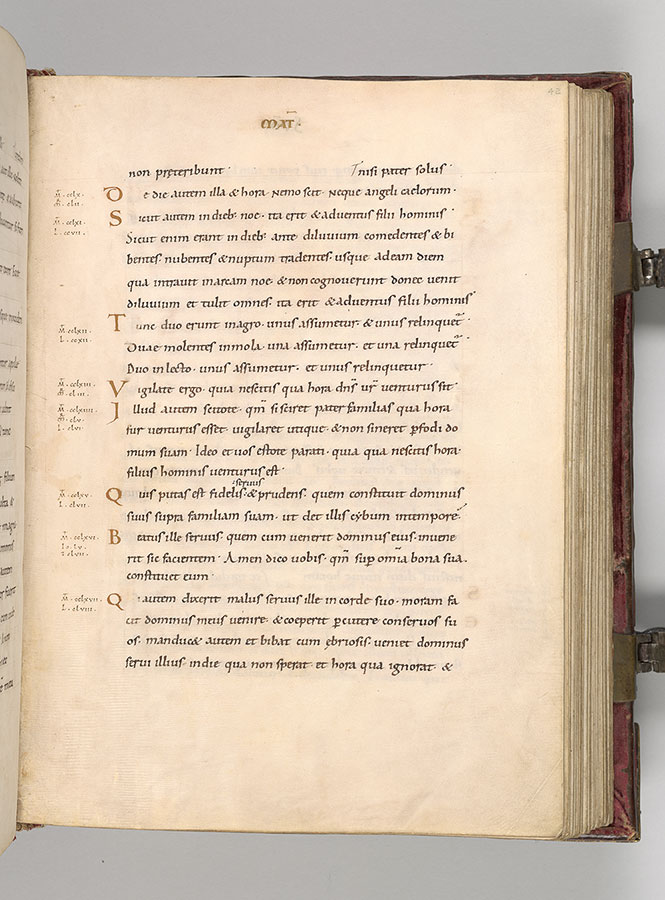 42
MAT̄·
non preteribunt· nisi pater solus·
De die autem illa & hora nemo scit· neque angeli caelorum·
Sicut autem in dieb; noe· ita erit & aduentus filii hominis·
Sicut enim erant in dieb; ante diluuium comedentes & bi
bentes· nubentes & nuptum tradentes· usque ad eam diem
qua intrauit in arcam noe· & non cognouerunt donec uenit
diluuium et tulit omnes· ita erit & aduentus filii hominis·
Tunc duo erunt in agro· unus assumetur· & unus relinquet̄·
Duae molentes in mola· una assumetur· et una relinquet̄·
Duo in lecto· unus assumetur· et unus relinquetur·
Vigilate ergo· quia nescitis qua hora dn̄s ur̄ uenturus sit·
Illud autem scitote· qm̄ si sciret pater familias qua hora
fur uenturus esset· uigilaret utique· & non sineret p̱fodi do
mum suam· Ideo et uos estote parati· quia qua nescitis hora·
filius hominis uenturus est·
seruus
Quis putas est fidelis· & prudens· quem constituit dominus
suus supra familiam suam· ut det illis cybum in tempore·
Beatus ille seruus· quem cum uenerit dominus eius· inuene
rit sic facientem· Amen dico uobis· qm̄ sup̱ om̄ia bona sua·
constituet eum·
Q autem dixerit malus seruus ille in corde suo· moram fa
cit dominus meus uenire· & coeperit p̱cutere conseruos su
os· manduc& autem et bibat cum ębriosis· ueniet dominus
serui illius· in die qua non sperat· et hora qua ignorat· &